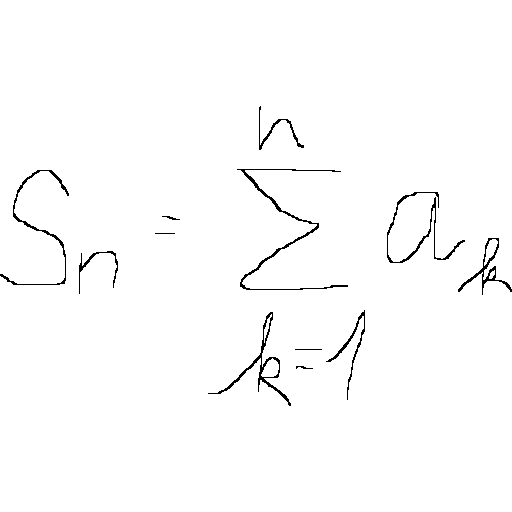 S_n = \sum_{k=1}^{n} a_k